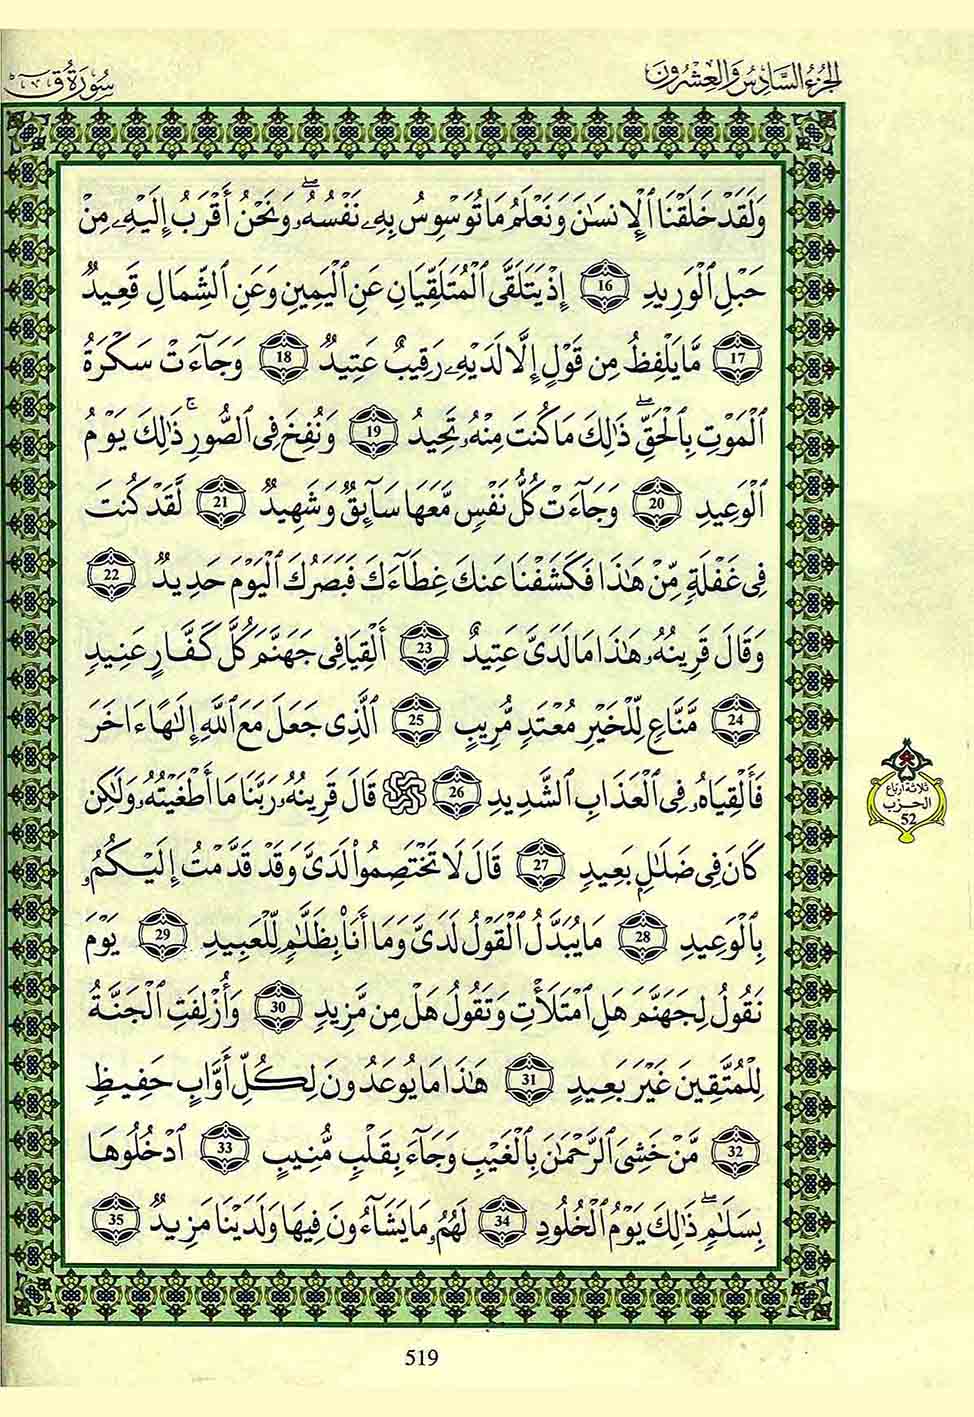 الجزء السادس والعشرون
سورة ق
وَلَقَدْ خَلَقْنَا ٱلْإِنسَٰنَ وَنَعْلَمُ مَا تُوَسْوِسُ بِهِۦ نَفْسُهُۥ ۖ وَنَحْنُ أَقْرَبُ إِلَيْهِۦ مِنْ
حَبْلِ ٱلْوَرِيدِ 16 إِذْ يَتَلَقَّى ٱلْمُتَلَقِّيَانِ عَنِ ٱلْيَمِينِ وَعَنِ ٱلشِّمَالِ قَعِيدٌ
17 مَّا يَلْفِظُ مِن قَوْلٍ إِلَّا لَدَيْهِۦ رَقِيبٌ عَتِيدٌ 18 وَجَآءَتْ سَكْرَةُ
ٱلْمَوْتِ بِٱلْحَقِّ ۖ ذَٰلِكَ مَا كُنتَ مِنْهُۥ تَحِيدُ 19 وَنُفِخَ فِى ٱلصُّورِ ۚ ذَٰلِكَ يَوْمُ
ٱلْوَعِيدِ 20 وَجَآءَتْ كُلُّ نَفْسٍ مَّعَهَا سَآئِقٌ وَشَهِيدٌ 21 لَّقَدْ كُنتَ
فِى غَفْلَةٍ مِّنْ هَٰذَا فَكَشَفْنَا عَنكَ غِطَآءَكَ فَبَصَرُكَ ٱلْيَوْمَ حَدِيدٌ 22
وَقَالَ قَرِينُهُۥ هَٰذَا مَا لَدَىَّ عَتِيدٌ 23 أَلْقِيَا فِى جَهَنَّمَ كُلَّ كَفَّارٍ عَنِيدٍ
24 مَّنَّاعٍ لِّلْخَيْرِ مُعْتَدٍ مُّرِيبٍ 25 ٱلَّذِى جَعَلَ مَعَ ٱللَّهِ إِلَٰهًا ءَاخَرَ
فَأَلْقِيَاهُۥ فِى ٱلْعَذَابِ ٱلشَّدِيدِ 26 قَالَ قَرِينُهُۥ رَبَّنَا مَا أَطْغَيْتُهُۥ وَلَٰكِن
كَانَ فِى ضَلَٰلٍۭ بَعِيدٍ 27 قَالَ لَا تَخْتَصِمُوا۟ لَدَىَّ وَقَدْ قَدَّمْتُ إِلَيْكُمُۥ
بِٱلْوَعِيدِ 28 مَا يُبَدَّلُ ٱلْقَوْلُ لَدَىَّ وَمَا أَنَا۠ بِظَلَّٰمٍ لِّلْعَبِيدِ 29 يَوْمَ
نَقُولُ لِجَهَنَّمَ هَلِ ٱمْتَلَأْتِ وَتَقُولُ هَلْ مِن مَّزِيدٍ 30 وَأُزْلِفَتِ ٱلْجَنَّةُ
لِلْمُتَّقِينَ غَيْرَ بَعِيدٍ 31 هَٰذَا مَا يُوعَدُونَ لِكُلِّ أَوَّابٍ حَفِيظٍ
32 مَّنْ خَشِىَ ٱلرَّحْمَٰنَ بِٱلْغَيْبِ وَجَآءَ بِقَلْبٍ مُّنِيبٍ 33 ٱدْخُلُوهَا
بِسَلَٰمٍ ۖ ذَٰلِكَ يَوْمُ ٱلْخُلُودِ 34 لَهُمُۥ مَا يَشَآءُونَ فِيهَا وَلَدَيْنَا مَزِيدٌ 35
ثلاثة أرباع
الحزب
52
519